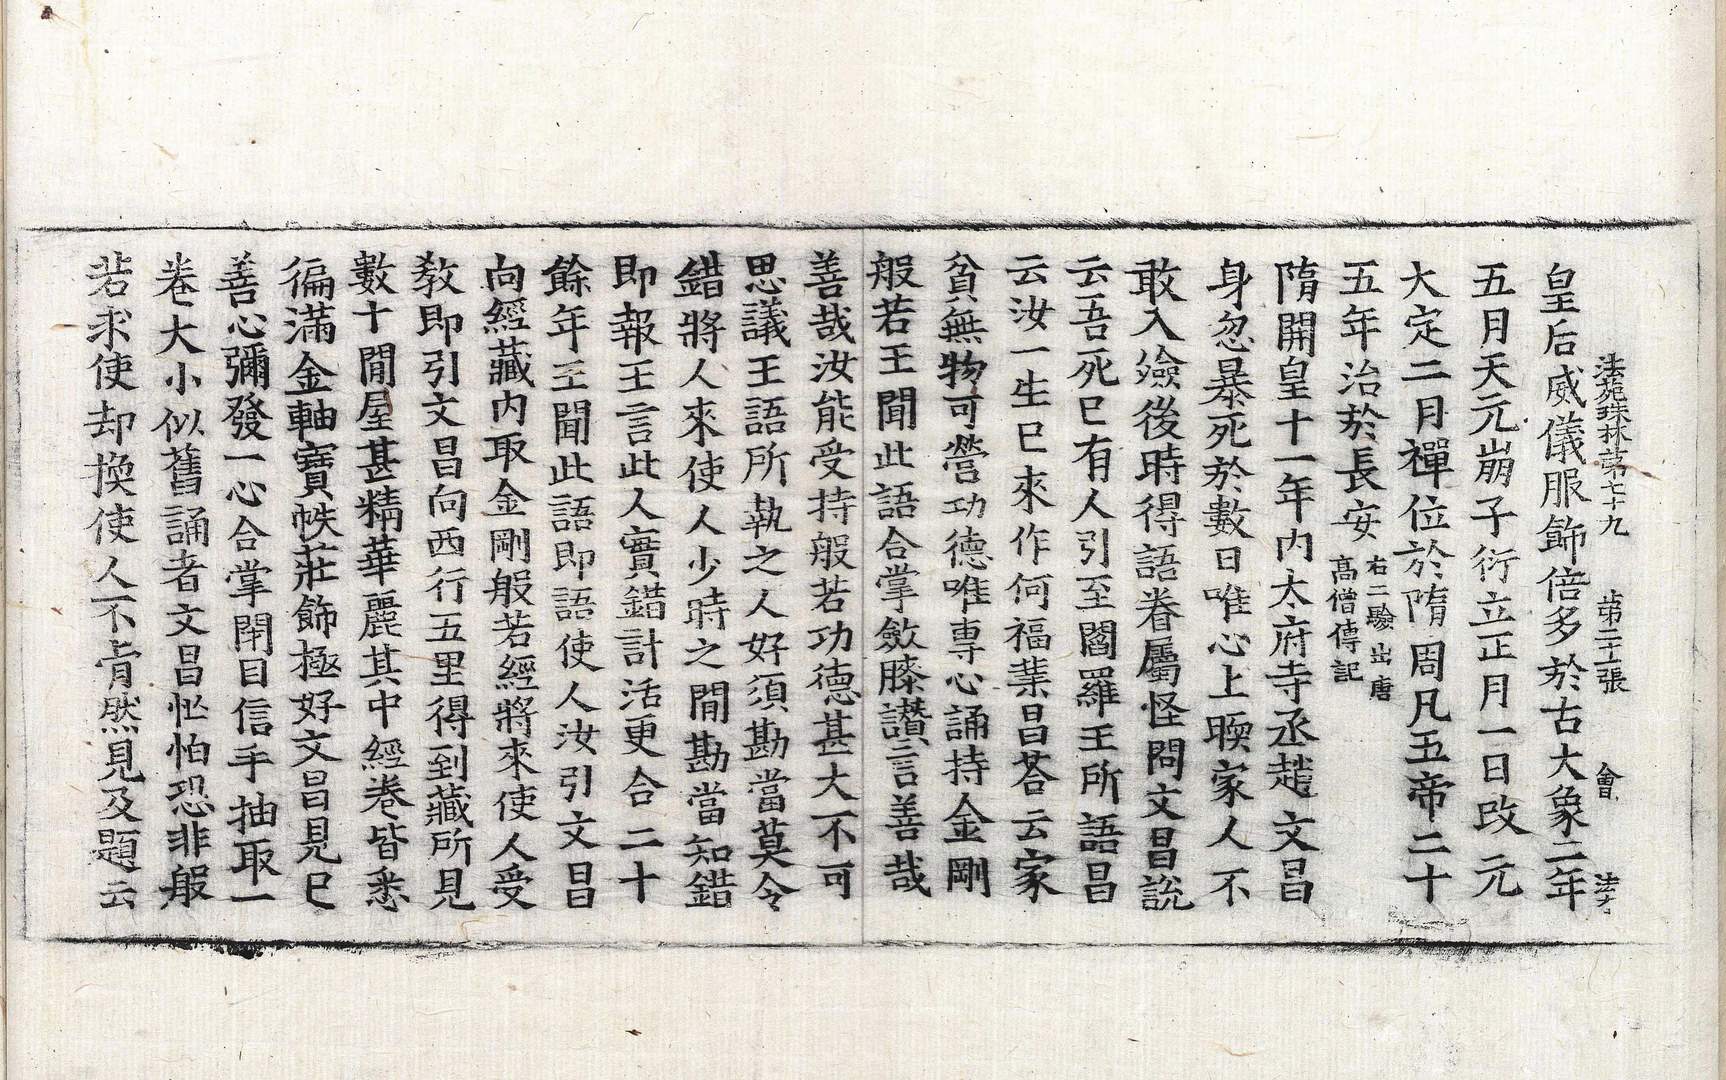 法苑珠林第七十九　第二十張　會　法
皇后威儀服飾倍多於古大象二年
五月天元崩子衍立正月一日改元
大定二月禪位於隋周凡五帝二十
五年治於長安右二驗出唐高僧傳記
隋開皇十一年內太府寺丞趙文昌
身忽暴死於數日唯心上暖家人不
敢入殮後時得語眷屬怪問文昌說
云吾死已有人引至閻羅王所語昌
云汝一生已來作何福業昌荅云家
貧無物可營功德唯專心誦持金剛
般若王聞此語合掌斂膝讚言善哉
善哉汝能受持般若功德甚大不可
思議王語所執之人好須勘當莫令
錯將人來使人少時之間勘當知錯
即報王言此人實錯計活更合二十
餘年王聞此語即語使人汝引文昌
向經藏內取金剛般若經將來使人受
教即引文昌向西行五里得到藏所見
數十間屋甚精華麗其中經卷皆悉
徧滿金軸寶帙莊飾極好文昌見已
善心彌發一心合掌閇目信手抽取一
卷大小似舊誦者文昌忙怕恐非般
若求使却換使人不肯然見及題云